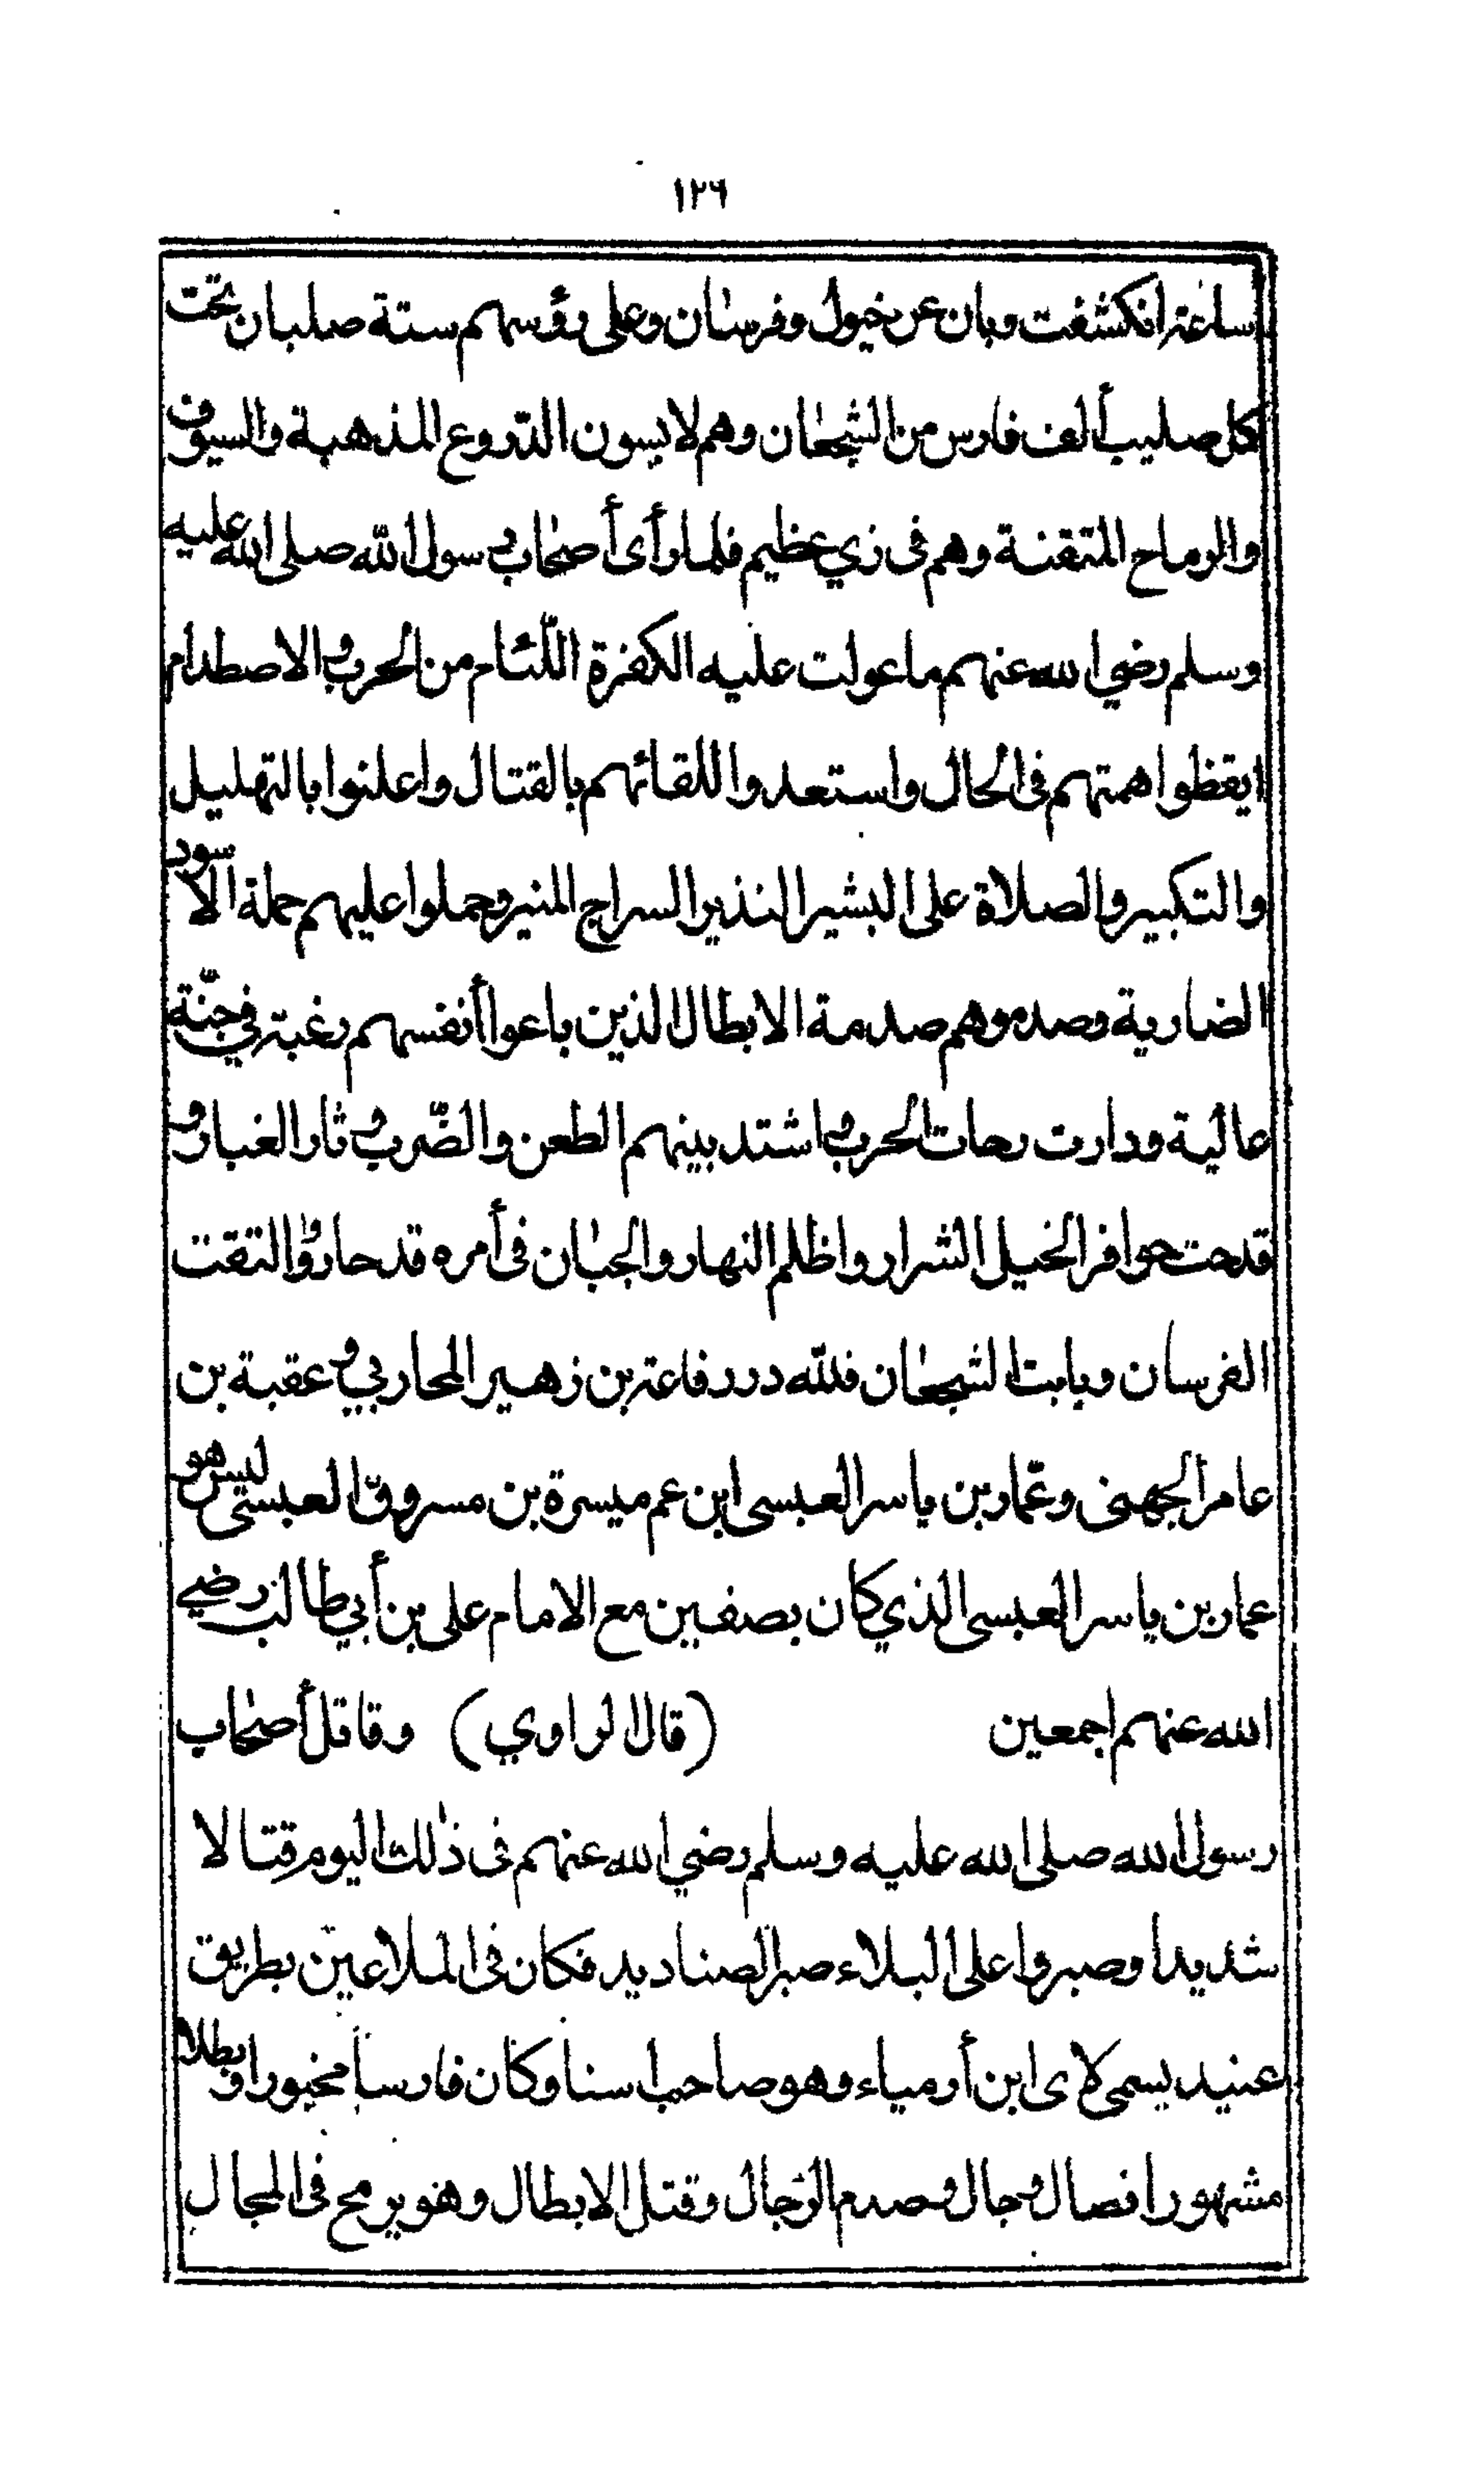 ١٢٦
ساعة انكشفت وبان عن خيول وفرسان وعلى رؤسهم ستة صلبان تحت
كل صليب ألف فارس من الشجعان وهم لابسون الدّروع المذهبة والسيوف
والرماح المتقنة وهم فى زي عظيم فلما رأى أصحاب رسول اللّه صلى الله عليه
وسلم رضي الله عنهم ما عولت عليه الكفرة اللّئام من الحرب والاصطدام
ايقظوا همتهم فى الحال واستعدوا للقائهم بالقتال واعلنوا بالتهليل
والتكبير والصلاة على البشير النذير السراج المنير وحملوا عليهم حملة الاسود
الضارية وصدموهم صدمة الابطال الذين باعوا أنفسهم رغبة في جنّة
عالية ودارت رحات الحرب واشتد بينهم الطعن والضّرب وثار الغبار و
قدحت حوافر الخيل الشرار واظلم النهار والجبان فى أمره قد حار والتقت
الفرسان وبابت الشجعان فللّه در رفاعة بن زهير المحاربي وعقبة بن
عامر الجهنى وعمّار بن ياسر العبسى ابن عم ميسرة بن مسروق العبسى ليس هو
عمار بن ياسر العبسى الذي كان بصفين مع الامام على بن أبي طالب رضي
الله عنهم اجمعين (قال الراوي) وقاتل أصحاب
رسول الله صلى الله عليه وسلم رضي الله عنهم فى ذلك اليوم قتالا
شديدا وصبروا على البلاء صبر الصناديد فكان فى الملاعين بطريق
عنيد يسمى لاى ابن أرمياء وهو صاحب اسنا وكان فارسا مخبورا وبطلا
مشهورا فصال وجال وصدم الرّجال وقتل الابطال وهو يرمح فى المجال